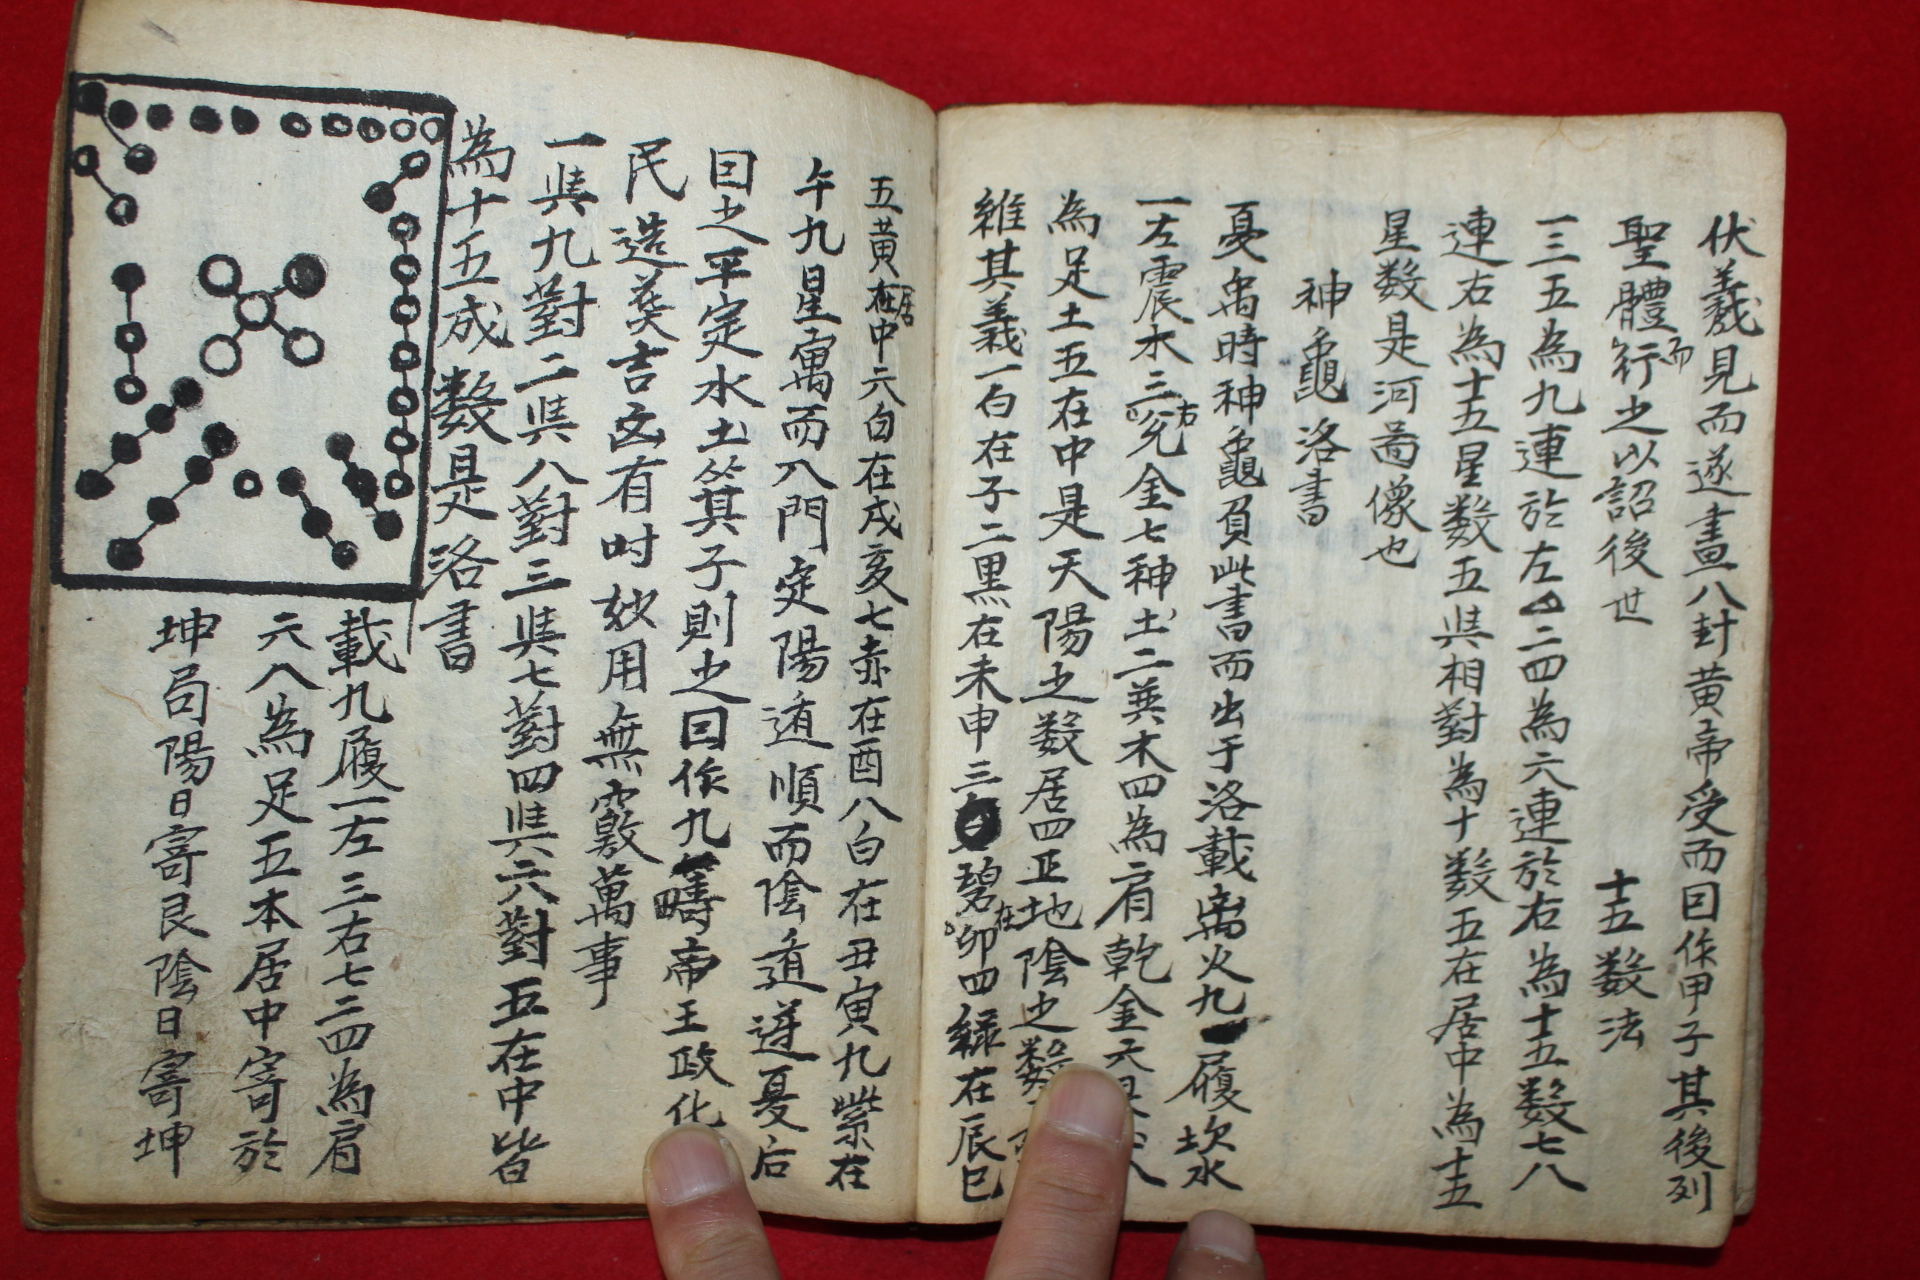 伏羲見而遂畫八卦黃帝受而因作甲子其後列
聖體而行之以詔後世
十五数法
一三五為九連於左二四為六連於右為十五数七八
連右為十五星数五與相對為十数五在居中為十五
星数是河啚像也
神龜洛書
夏禹時神龜負此書而出于洛載离火九履坎水
一左震木三右兌金七神土二巽木四為肩乾金六艮八
為足土五在中是天陽之数居四正地陰之数
維其義一白在子二黑在未申三碧在卯四綠在辰巳
五黃居中六白在戌亥七赤在酉八白在丑寅九紫在
午九星寓而八門定陽遁順而陰遁逆夏后
因之平定水土箕子則之因作九疇帝王政化
民造葬吉凶有时妙用無窮萬事
一與九對二與八對三與七對四與六對五在中皆
為十五成数是洛書
載九履一左三右七二四為肩
六八為足五本居中寄於
坤局陽日寄艮陰日寄坤